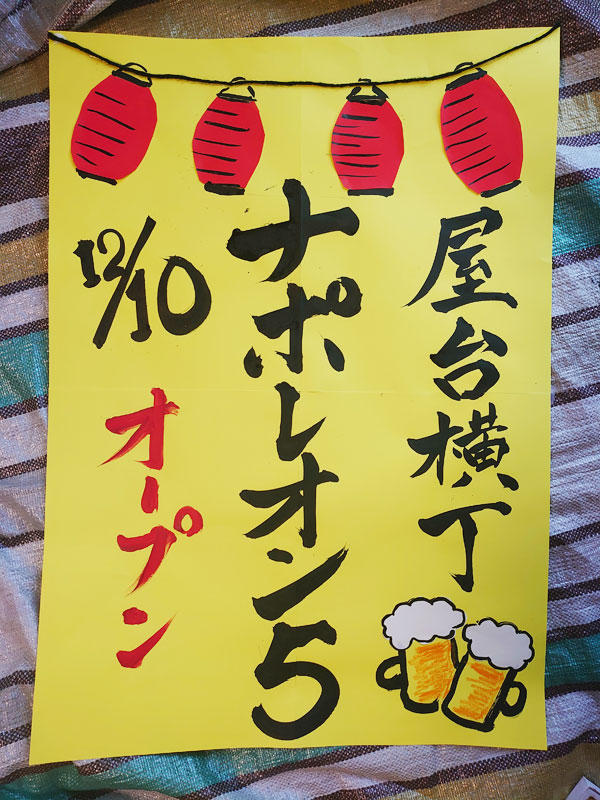 屋台横丁
ナポレオン5
12/10
オープン